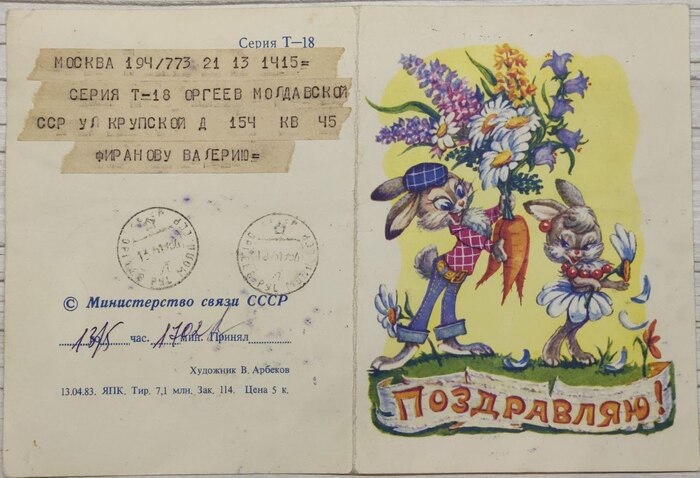 Серия Т—18
МОСКВА 194/773 21 13 1415=
СЕРИЯ Т-18 ОРГЕЕВ МОЛДАВСКОЙ
ССР УЛ КРУПСКОЙ Д 154 КВ 45
ФИРАНОВУ ВАЛЕРИЮ=
© Министерство связи СССР
13/5 час. 1702 мин. Принял
Художник В. Арбеков
13.04.83. ЯПК. Тир. 7,1 млн. Зак. 114. Цена 5 к.
ПОЗДРАВЛЯЮ!